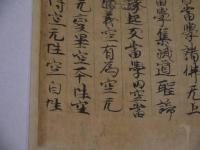 當學諸佛无上
當學集滅道聖諦
起支當學內空當
義空有為空无
无變異空本性空
得空无性空自性